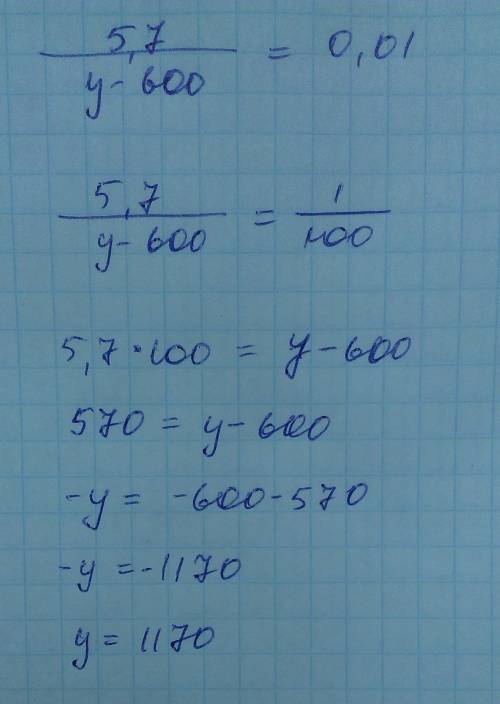 5,7 / y-600 = 0,01
5,7 / y-600 = 1 / 100
5,7·100 = y-600
570 = y-600
-y = -600-570
-y = -1170
y = 1170